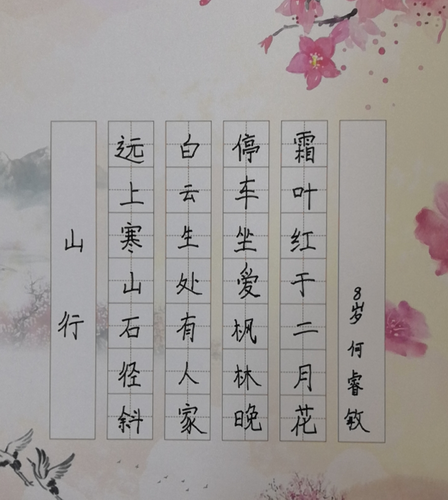 山行
远上寒山石径斜
白云生处有人家
停车坐爱枫林晚
霜叶红于二月花
8岁 何睿敏